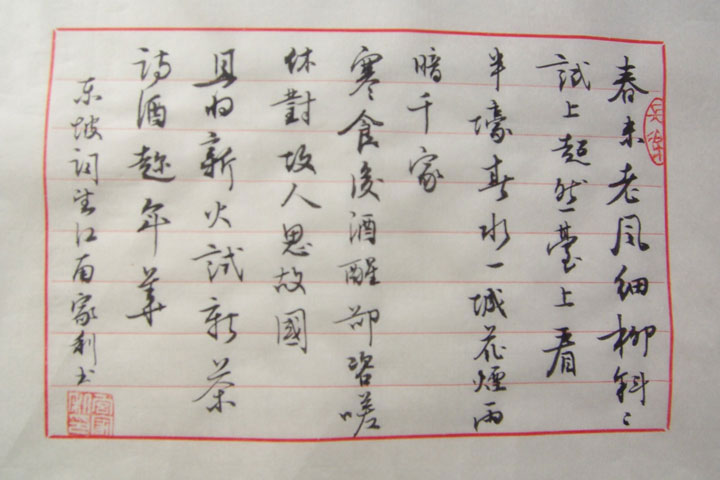 春未老風細柳斜〻
試上超然臺上看
半壕春水一城花煙雨
暗千家
寒食後酒醒卻咨嗟
休對故人思故國
且將新火試新茶
詩酒趁年華
东坡词望江南家利书